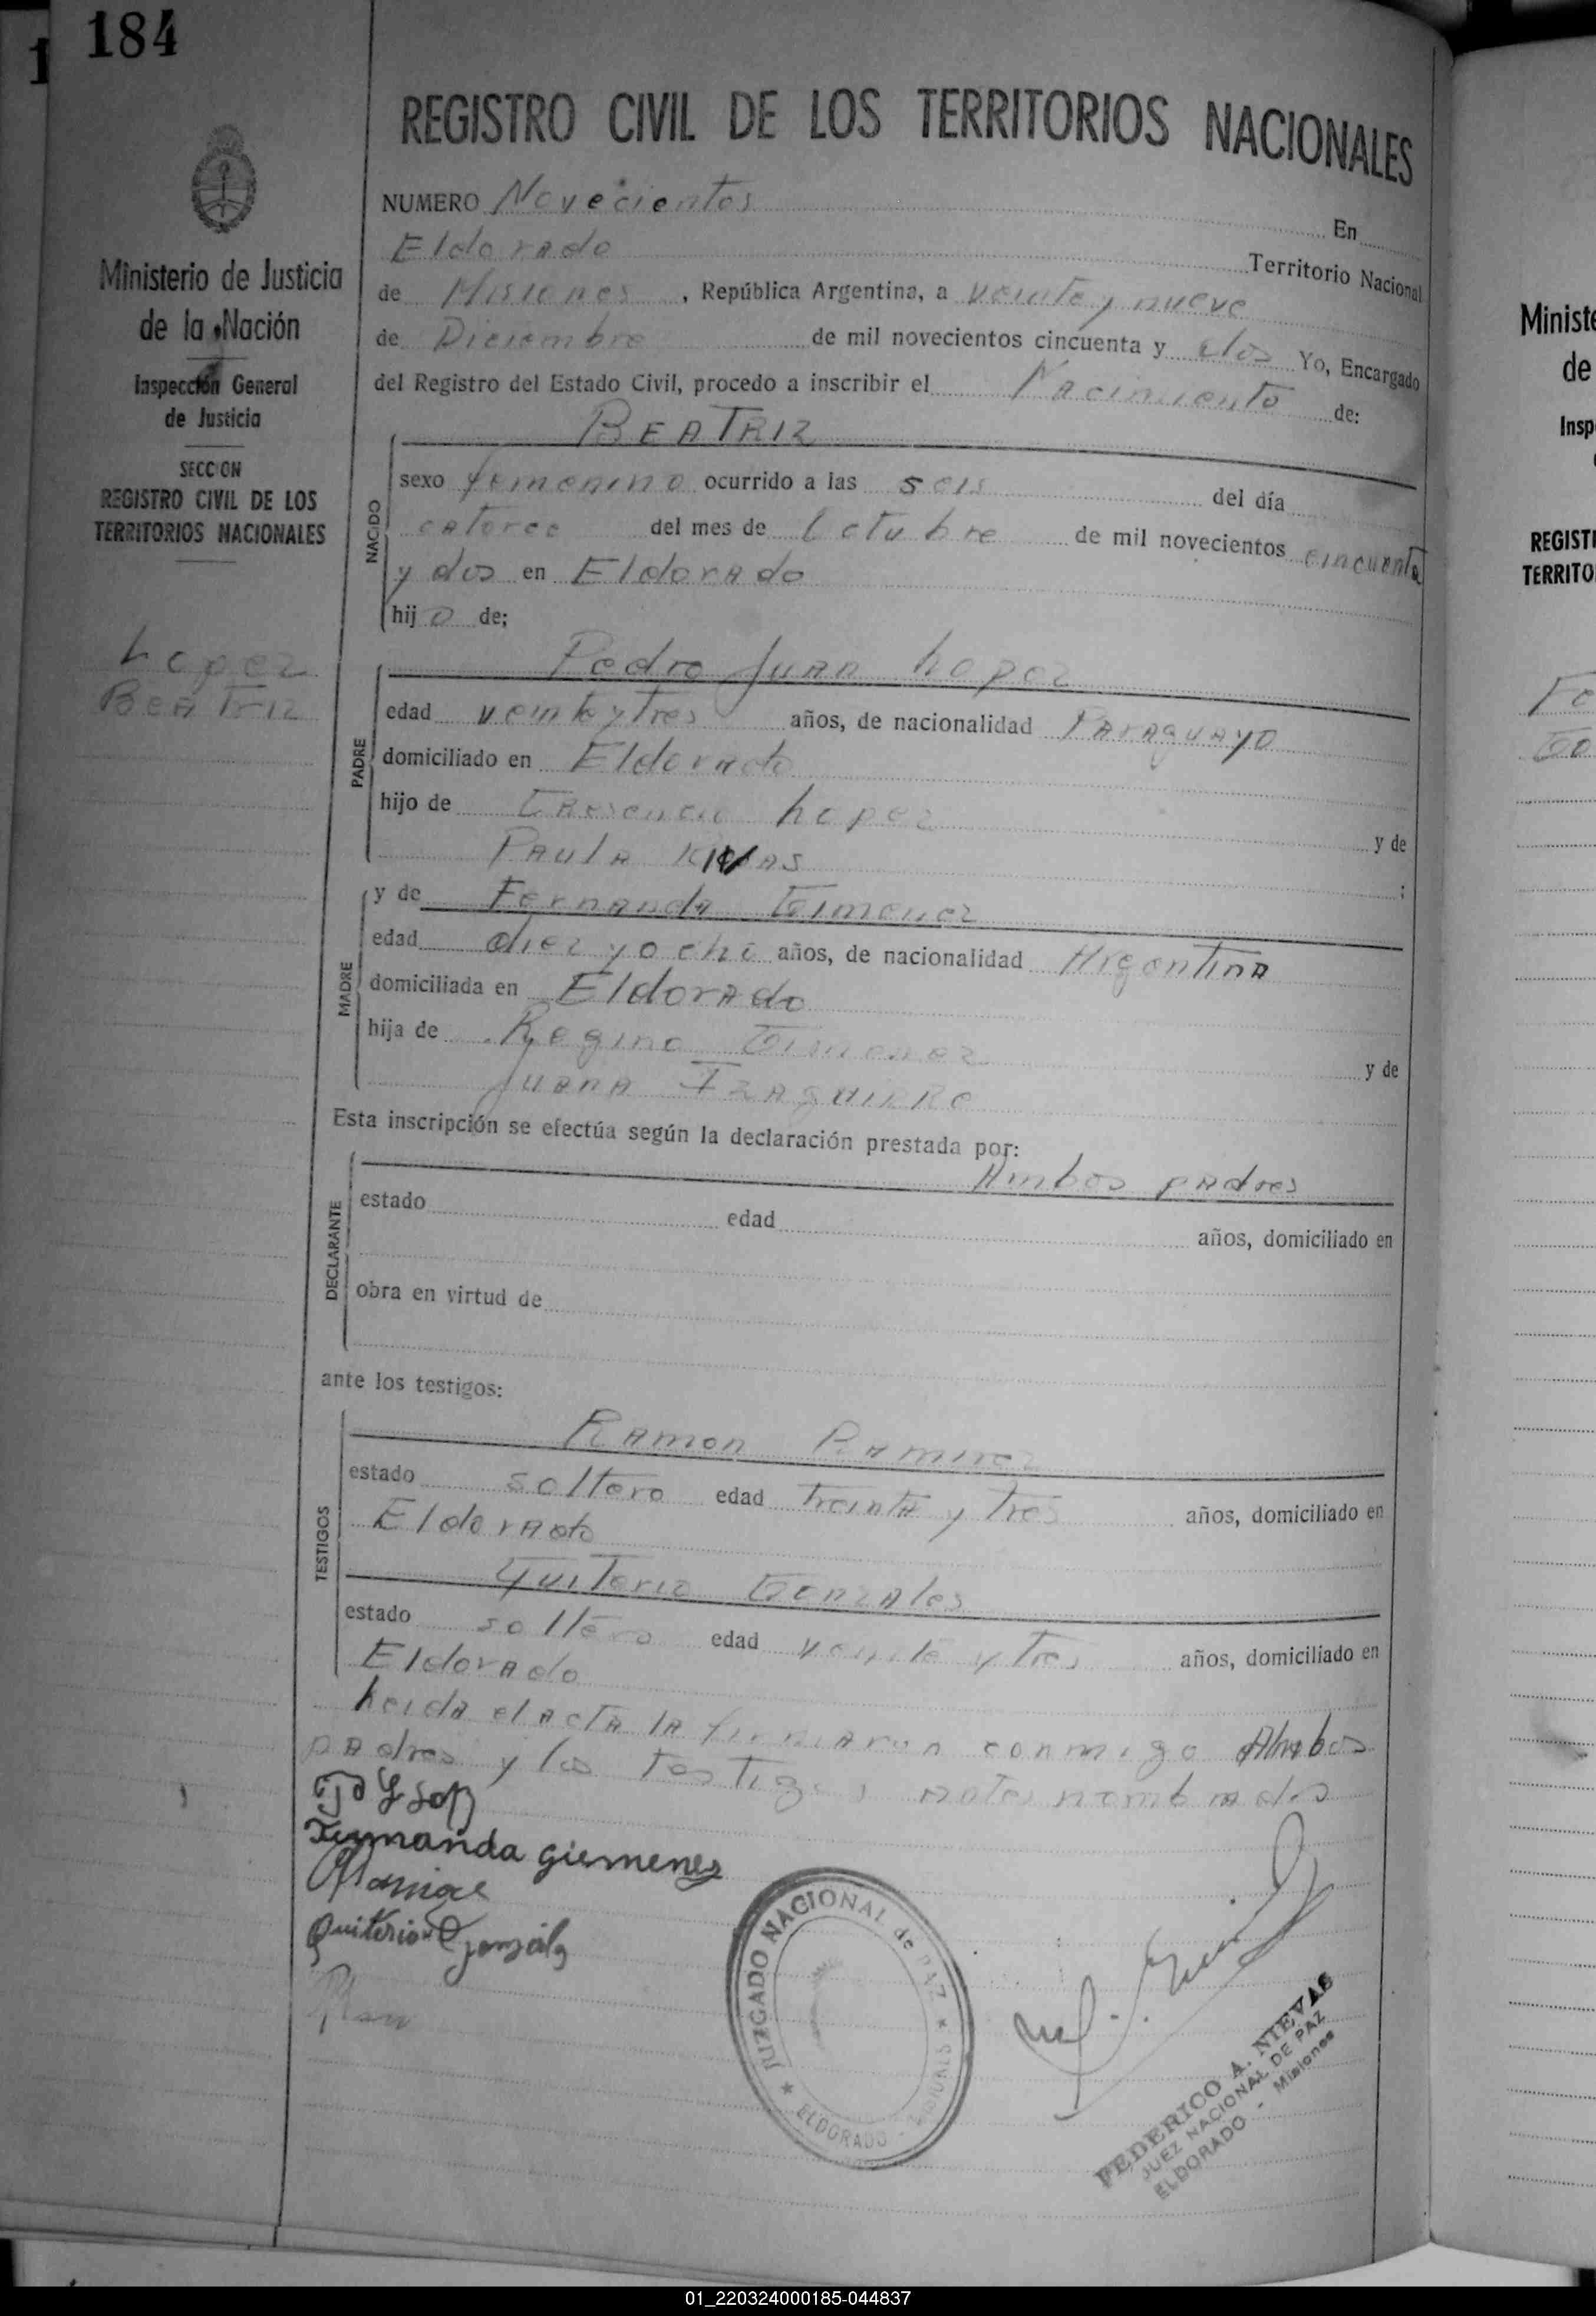 184
1
REGISTRO CIVIL DE LOS TERRITORIOS NACIONALES
Ministerio de Justicia
de la Nación
Inspección General
de Justicia
SECCION
REGISTRO CIVIL DE LOS
TERRITORIOS NACIONALES
Lopez
BEATriz
NUMERO Novecientos En
Eldorado Territorio Nacional
de Misiones, República Argentina, a veinte y nueve
de Diciembre de mil novecientos cincuenta y dos Yo, Encargado
del Registro del Estado Civil, procedo a inscribir el Nacimiento de:
BEATRIZ
NACIDO
sexo femenino ocurrido a las seis del día
catorce del mes de Octubre de mil novecientos cincuenta
y dos en Eldorado
hijo de;
Pedro Juan Lopez
PADRE
edad veinte y tres años, de nacionalidad Paraguayo
domiciliado en Eldorado
hijo de Lopez
y de
Paula ;
MADRE
y de Fernanda Gimenez
edad diez y ocho años, de nacionalidad Argentina
domiciliada en Eldorado
hija de Regino Gimenez
y de
Juana
Esta inscripción se efectúa según la declaración prestada por:
Ambos padres
DECLARANTE
estado edad años, domiciliado en
obra en virtud de
ante los testigos:
Ramon Ramirez
TESTIGOS
estado soltero edad treinta y tres años, domiciliado en
Eldorado
Quiterio Gonzales
estado soltero edad veinte y tres años, domiciliado en
Eldorado
Leida el acta la firmaron conmigo Ambos
padres y los testigos antes nombrados
Fernanda giemenez
Quiterio gonzalez
JUZGADO NACIONAL de PAZ
ELDORADO - MISIONES
FEDERICO A. NIEVAS
JUEZ NACIONAL DE PAZ
ELDORADO - Misiones
Ministe
de
Insp
REGISTI
TERRITO
01_220324000185-044837